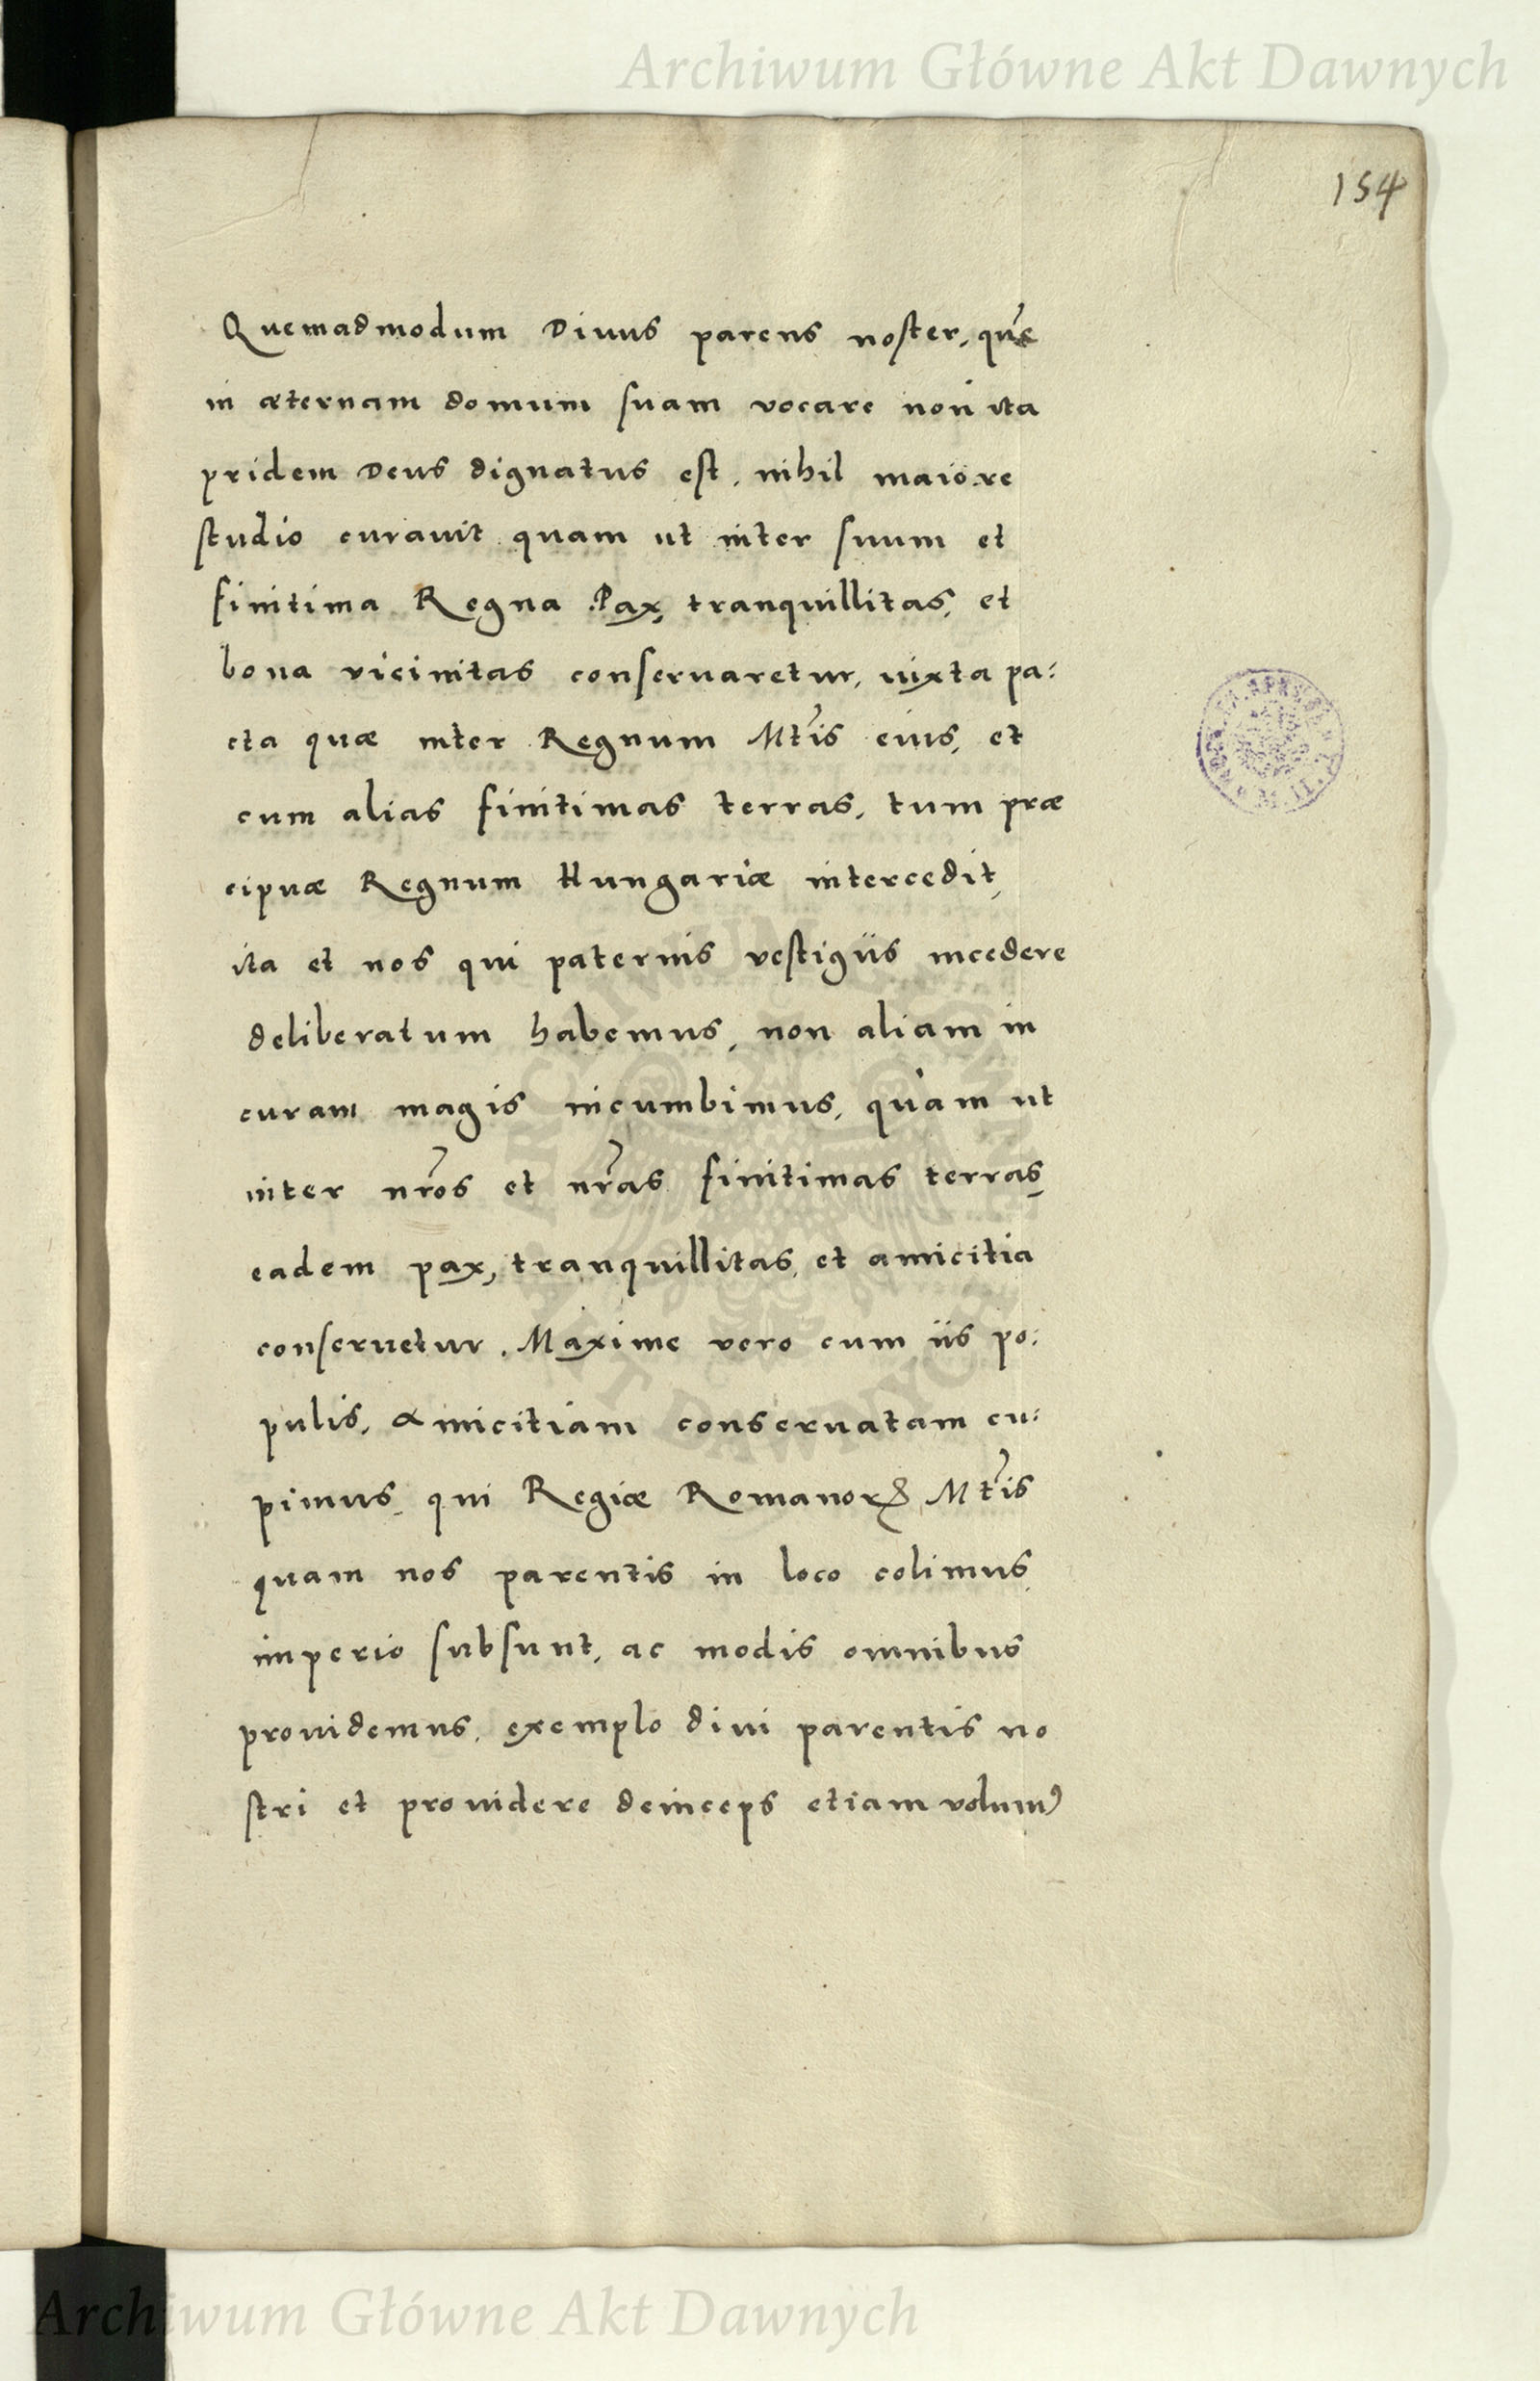 Archiwum Główne Akt Dawnych
154
Quemadmodum Divus parens noster, que͂
in æternam domum suam vocare non ita
pridem Deus dignatus est, nihil maiore
studio curavit quam ut inter suum et
finitima Regna Pax, tranquillitas, et
bona vicinitas conservaretur, iuxta pa:
cta quæ inter Regnum Mt̃is eius, et
cum alias finitimas terras, tum præ
cipuæ Regnum Hungariæ intercedit,
ita et nos qui paternis vestigiis incedere
deliberatum habemus, non aliam in
curam magis incumbimus, quam ut
inter nr̃os et nr̃as finitimas terras
eadem pax, tranquillitas, et amicitia
conseruetur. Maxime vero cum iis po:
pulis, amicitiam conseruatam cu:
pimus, qui Regiæ Romanorꝝ Mt̃is
quam nos parentis in loco colimus,
imperio subsunt, ac modis omnibus
prouidemus, exemplo diui parentis no
stri et prouidere deinceps etiam volumꝰ
Archiwum Główne Akt Dawnych